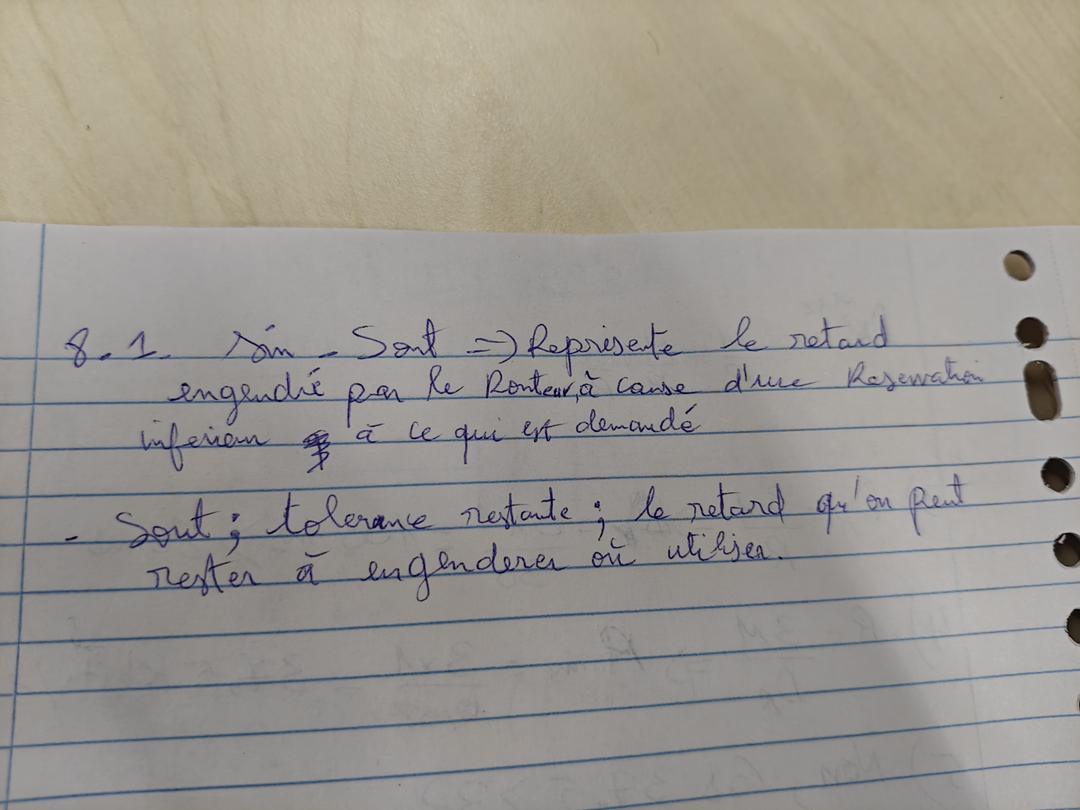 8.1. Sin - Sout => Représente le retard
engendré par le Routeur, à cause d'une Reservation
inferieur à ce qui est demandé
- Sout ; tolerance restante ; le retard qu'on peut
rester à engenderer où utiliser.